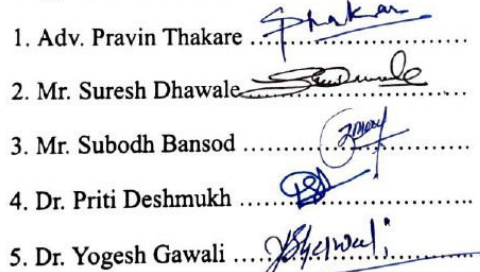 1. Adv. Pravin Thakare ..................................
2. Mr. Suresh Dhawale..................................
3. Mr. Subodh Bansod ..................................
4. Dr. Priti Deshmukh ..................................
5. Dr. Yogesh Gawali ..................................